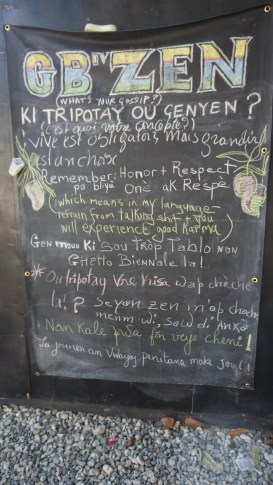 GB" ZEN
(WHAT'S YOUR GOSSIP?)
KI TRIPOTAY OU GENYEN ?
(c'est quoi votre concepte?)
vivre est obligatoir mais grandir
est un choix
Remember: Honor + Respect
pa bliye One aK Respè
(which means in my language-
refrain from talking shit + you
will experience good Karma)
Gen moun Ki Sou Trop Tablo non
GHetto BienNale la!
* Ou tripotay Vre Visa w ap chache
la? Se yon zen m'ap chache
menm wi, Sa w di AnKò
Nan Kale pwa fòn veye chenn!
La jounen an